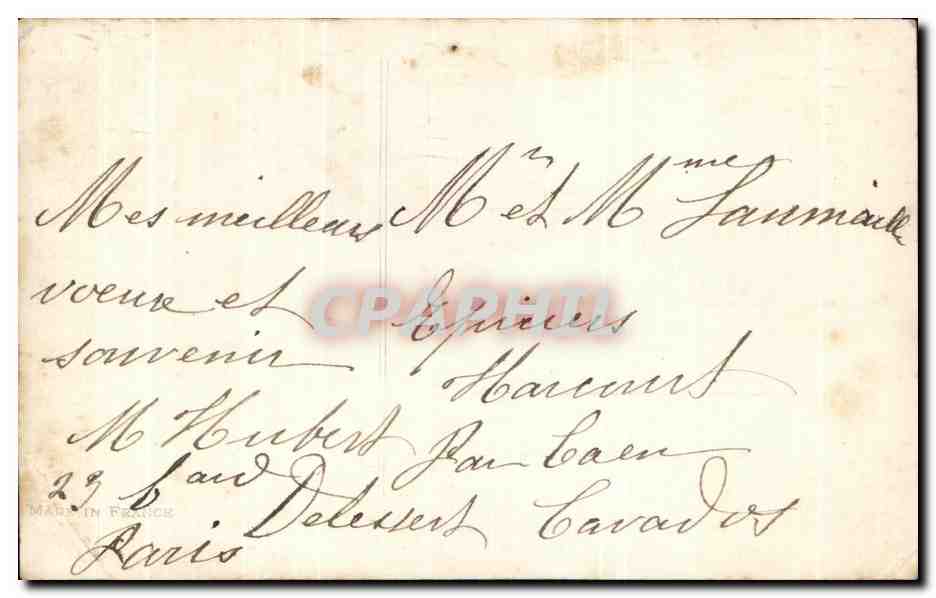 Mes meilleurs
voeux et
souvenir
M Hubert
23 bard Delessert
Paris
Mr et Mme
Epiciers
Harcourt
Par Caen
Cavados
MADE IN FRANCE
CPAPHIL